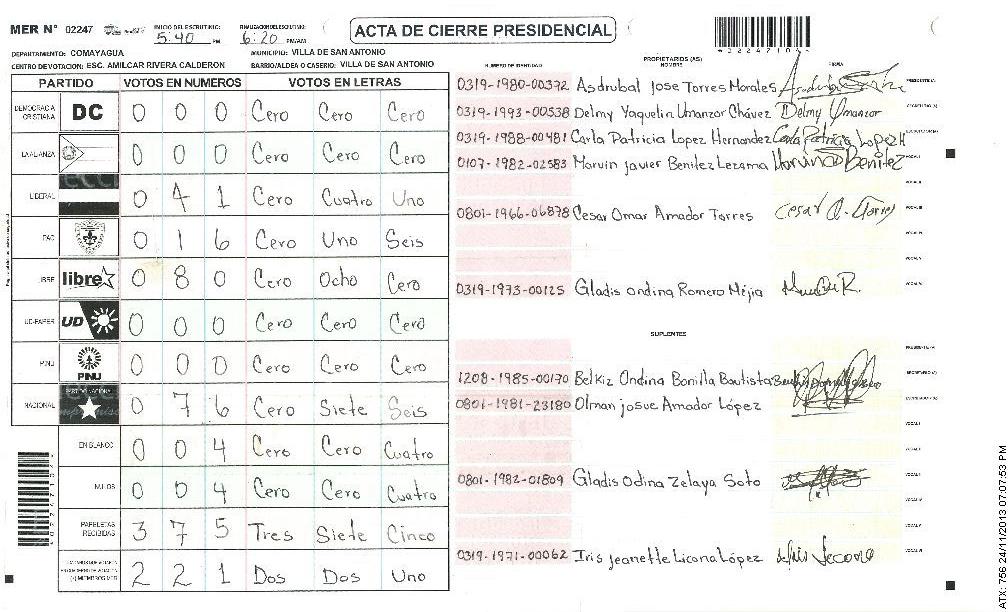 MER N° 02247 INICIO DEL ESCRUTINIO: 5:40 PM FINALIZACION DEL ESCRUTINIO: 6:20 PM/AM
ACTA DE CIERRE PRESIDENCIAL
DEPARTAMENTO: COMAYAGUA MUNICIPIO: VILLA DE SAN ANTONIO
CENTRO DE VOTACION: ESC. AMILCAR RIVERA CALDERON BARRIO/ALDEA O CASERIO: VILLA DE SAN ANTONIO
PARTIDO VOTOS EN NUMEROS VOTOS EN LETRAS
DEMOCRACIA CRISTIANA DC 0 0 0 Cero Cero Cero
LA ALIANZA 0 0 0 Cero Cero Cero
LIBERAL 0 4 1 Cero Cuatro Uno
PAC 0 1 6 Cero Uno Seis
LIBRE libre 0 8 0 Cero Ocho Cero
UD-FAPER UD 0 0 0 Cero Cero Cero
PINU PINU 0 0 0 Cero Cero Cero
NACIONAL 0 7 6 Cero Siete Seis
EN BLANCO 0 0 4 Cero Cero Cuatro
NULOS 0 0 4 Cero Cero Cuatro
PAPELETAS RECIBIDAS 3 7 5 Tres Siete Cinco
2 2 1 Dos Dos Uno
NUMERO DE IDENTIDAD PROPIETARIOS (AS) NOMBRE FIRMA
0319-1980-00372 Asdrubal Jose Torres Morales
0319-1993-00538 Delmy Yaquelin Umanzor Chávez Delmy Umanzor
0319-1988-00481 Carla Patricia Lopez Hernandez Carla Patricia Lopez H
0107-1982-02583 Marvin Javier Benitez Lezama Marvin Benitez
0801-1966-06878 Cesar Omar Amador Torres Cesar O. Torres
0319-1973-00125 Gladis Ondina Romero Méjia
SUPLENTES
1208-1985-00170 Belkiz Ondina Bonilla Bautista
0801-1981-23180 Olman Josue Amador López
0801-1982-01809 Gladis Odina Zelaya Soto
0319-1971-00062 Iris Jeanette Licona López
ATX: 756 24/11/2013 07:07:53 PM